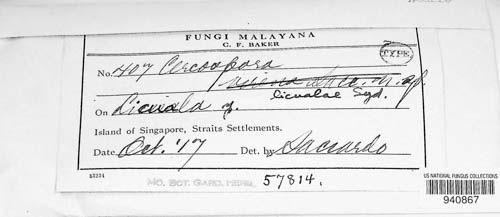 FUNGI MALAYANA
C. F. BAKER
TYPE
No. 407 Cercospora
n. sp.
licualae Syd.
On Licuala
Island of Singapore, Straits Settlements.
Date Oct. '17 Det. by Saccardo
MO. BOT. GARD. HERB.
57814.
US NATIONAL FUNGUS COLLECTIONS
940867